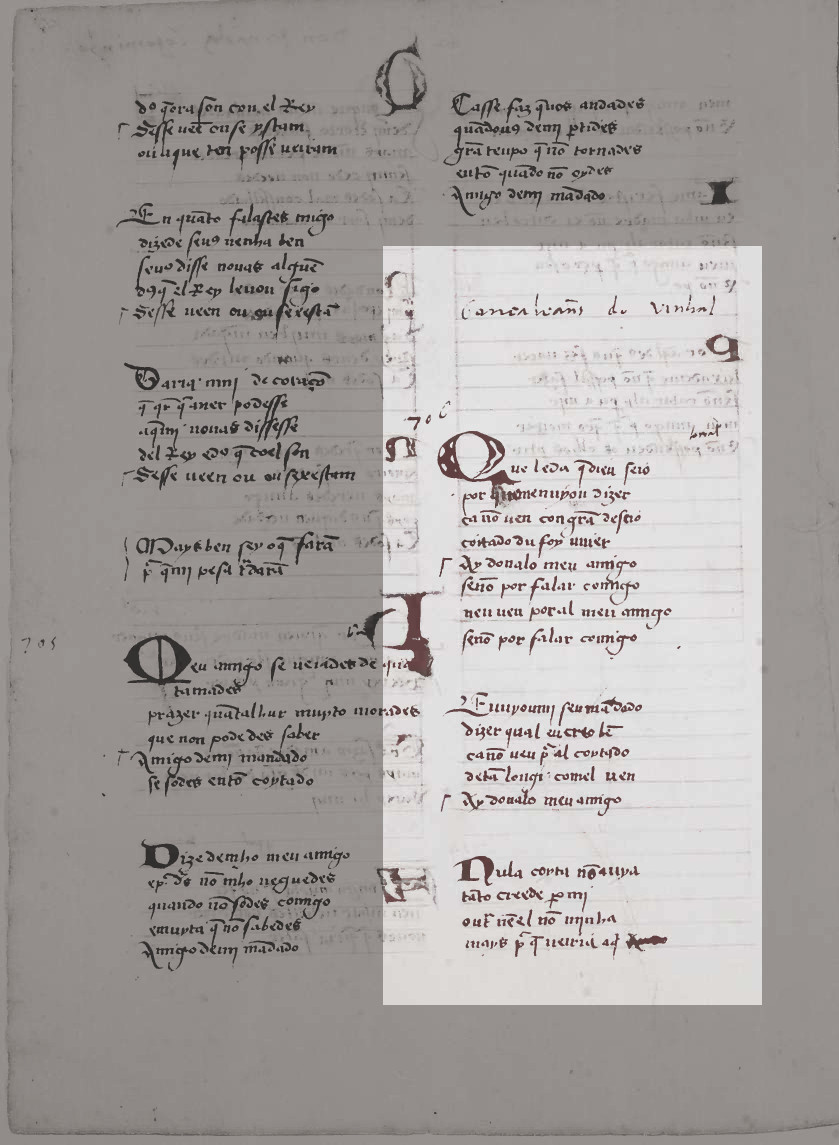 dº q̄ora son con el Rey
Sesse uee ouse ystam
ou ixque ten posse ueiram
En quāto falastes migo
dizede seu9 uenha ben
seuº disse nouas alguē
d9 q̄ el Rey leuou sigo
Sesse ueen ou
Daria mui de coraçō
q̄ q̄r q̄ auer podesse
aqmi nouas dissesse
del Rey edo q̄ coel son
Sesse ueen ou
Mays ben sey o q̄ farā
p̄ q̄mi pesa tardarā
705
Meu amigo se ueiades de
tamades
prazer quātalhur muyto morades
que non podedes saber
Amigo demi mandado
se sodes entō coytado
Dize demho meu amigo
ep̄ d̄s nō mho neguedes
quando nō sodes comigo
emuyta q̄ nō sabedes
Amigo demi mādado
Casse faz q̄uos andades
quādouº demi p̄tides
grā tenpo q̄ nō tornades
entō quādo nō oydes
Amigo demi mādado
Goncaleans do vinhal
706
tornel
Que leda q̄ oieu seiº
por que menuyou dizer
ca nō uen con grā deseiº
coitado du foy uiuer
Ay donalo meu amigo
senō por falar comigo
nen uen por al meu amigo
senō por falar comigo
Enuyoumi seu mādado
dizer qual eu creo bē
ca nō uen p̄ al coytado
de tā longi comel uen
Ay donalo meu amigo
Nula coyta nō auya
tāto creede per mi
outr̄ nē el nō minha
mays p̄ q̄ ueiria aq̄